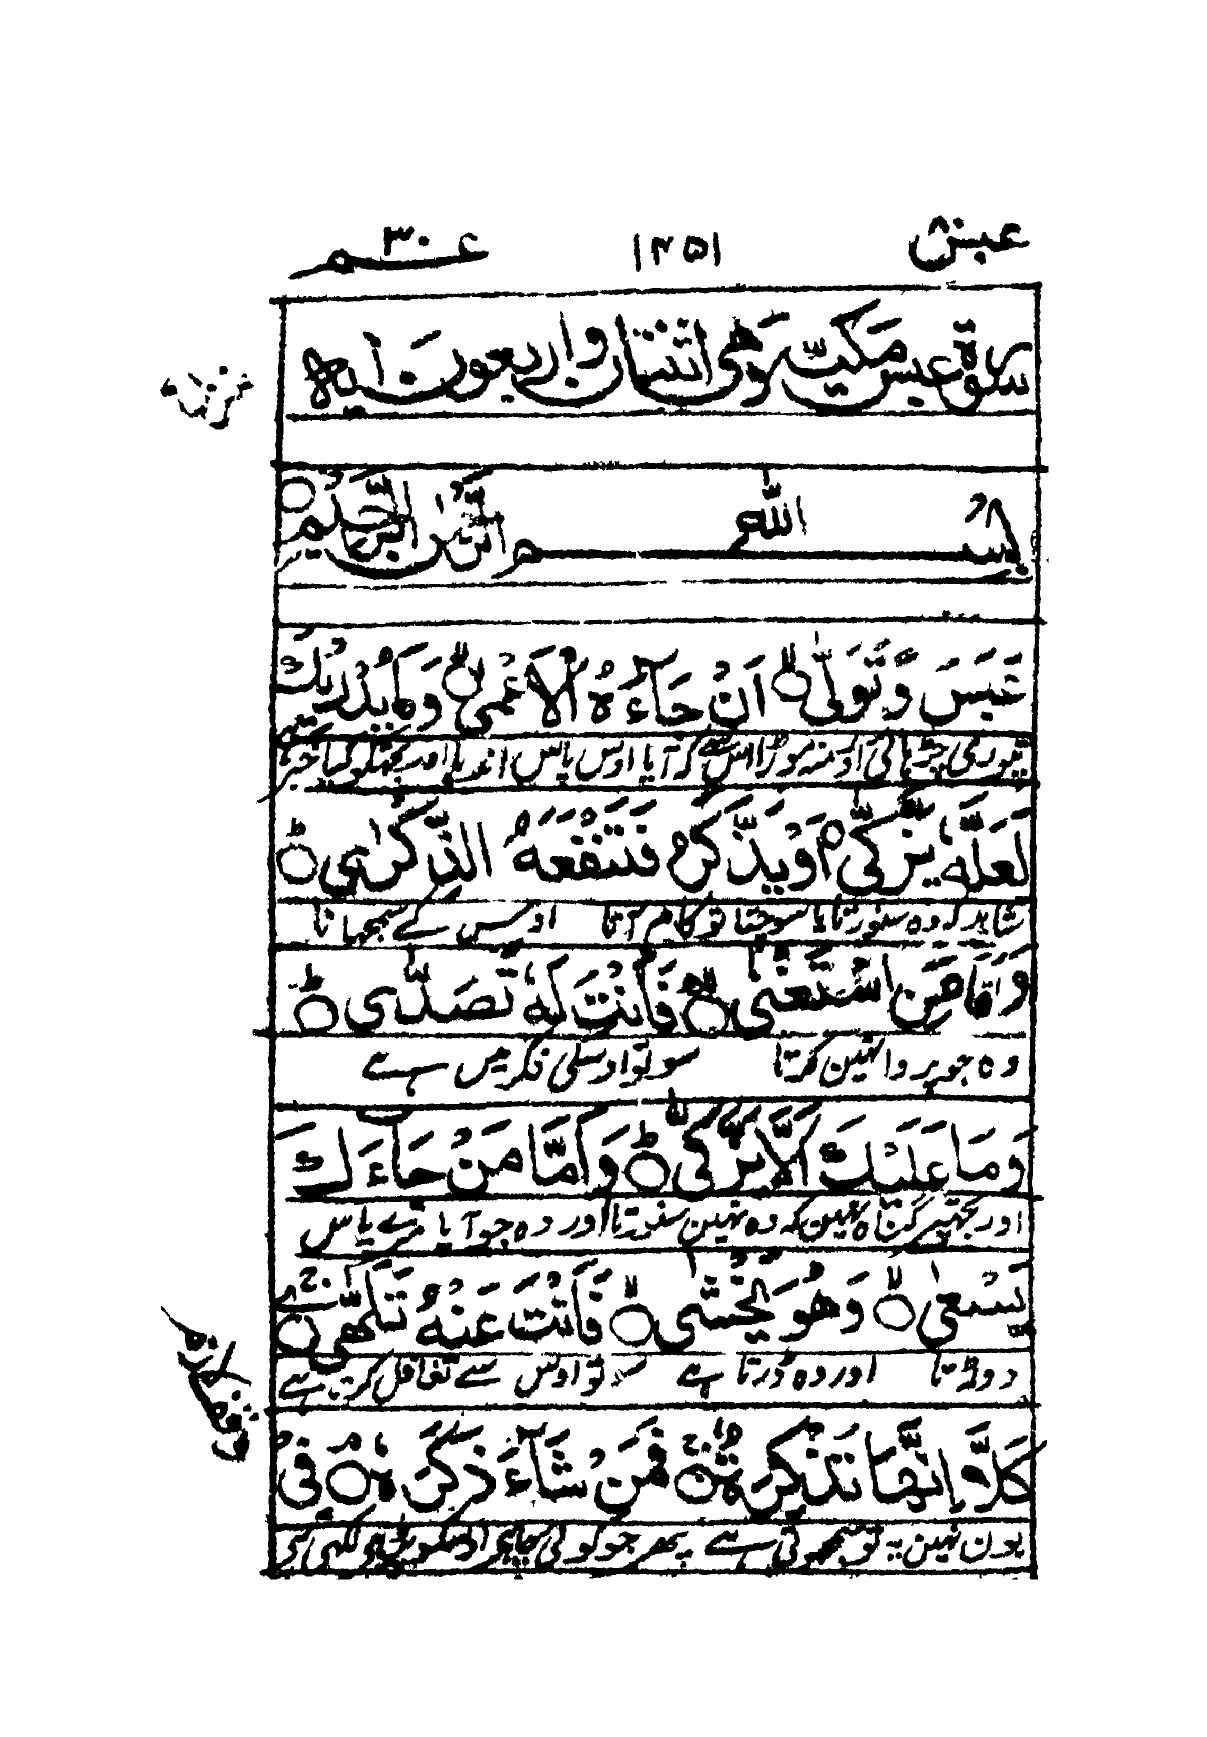 عبس ۸۰ ۱۲۵۱ عـم ۳۰
سورة عبس مكية وهى اثنتان واربعون اية
بسم الله الرحمن الرحيم
عَبَسَ وَتَوَلّٰى ۙ اَنْ جَآءَهُ الْاَعْمٰى ؕ وَمَا يُدْرِيْكَ
تیوری چڑہائی اور منہ موڑا اس سے کہ آیا اوس پاس اندہا اور تجھکو کیا خبر ہے
لَعَلَّهٗ يَزَّكّٰىٓ ۙ اَوْ يَذَّكَّرُ فَتَنْفَعَهُ الذِّكْرٰى ؕ
شاید کہ وہ سنورتا یا سوچتا تو کام آتا اوس کے سمجہانا
وَاَمَّا مَنِ اسْتَغْنٰى ۙ فَاَنْتَ لَهٗ تَصَدّٰى ؕ
وہ جو پروا نہین کرتا سو تو اوسکی فکر میں ہے
وَمَا عَلَيْكَ اَلَّا يَزَّكّٰى ؕ وَاَمَّا مَنْ جَآءَكَ
اور تجھپر گناہ نہین کہ وہ نہین سنورتا اور وہ جو آیا تیرے پاس
يَسْعٰى ۙ وَهُوَ يَخْشٰى ۙ فَاَنْتَ عَنْهُ تَلَهّٰى ۚ
دوڑتا اور وہ ڈرتا ہے سو تو اوس سے تغافل کرتا ہے
كَلَّآ اِنَّهَا تَذْكِرَةٌ ۚ فَمَنْ شَآءَ ذَكَرَهٗ ۘ فِىْ
یون نہین یہ تو سمجھوتی ہے پھر جو کوئی چاہے اوسکو پڑہے لکہی